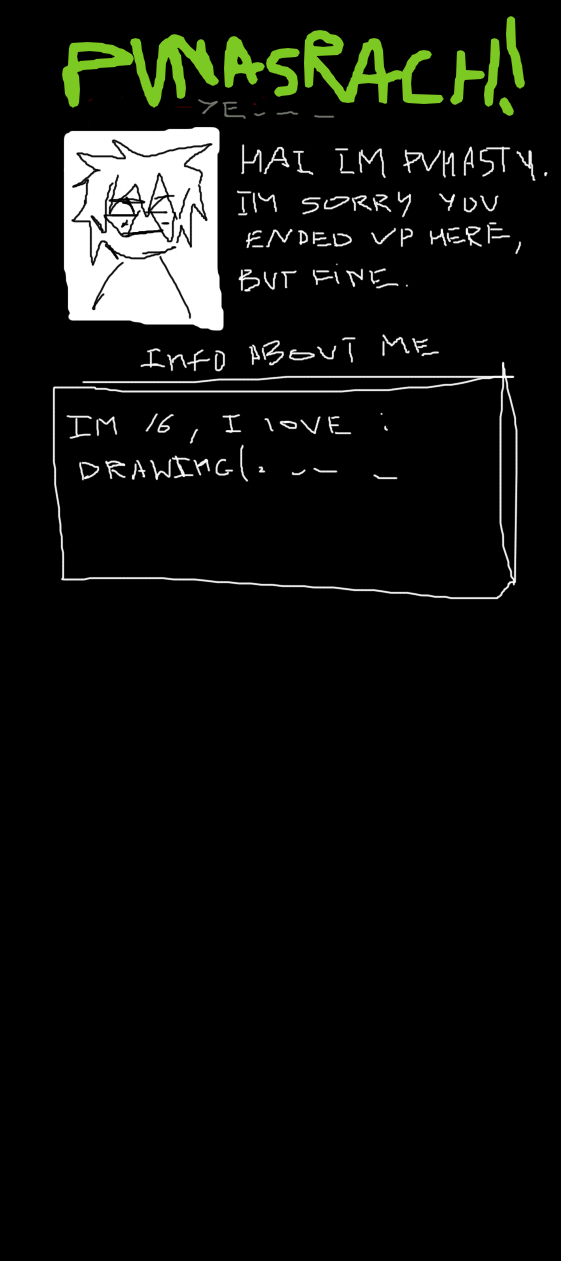 PVNASRACH!
YE...
HAI IM PVNASTY.
IM SORRY YOU
ENDED UP HERE,
BUT FINE.
INFO ABOUT ME
IM 16, I LOVE :
DRAWING(.